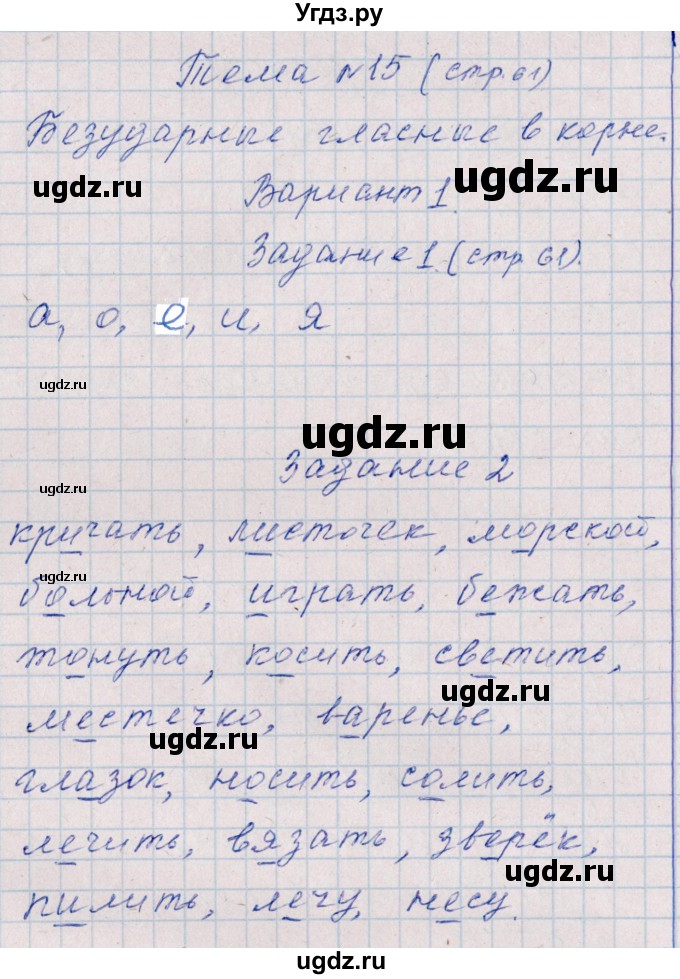 Угдз.ру
Тема №15 (стр. 61)
Безударные гласные в корне.
ugdz.ru ugdz.ru
Вариант 1.
Задание 1 (стр. 61).
а, о, е, и, я
ugdz.ru
ugdz.ru
Задание 2
ugdz.ru
кричать, листочек, морской,
ugdz.ru
больной, играть, бежать,
тонуть, косить, светить,
ugdz.ru
местечко, варенье,
ugdz.ru
глазок, носить, солить,
лечить, вязать, зверёк,
ugdz.ru
пилить, лечу, несу.
ugdz.ru